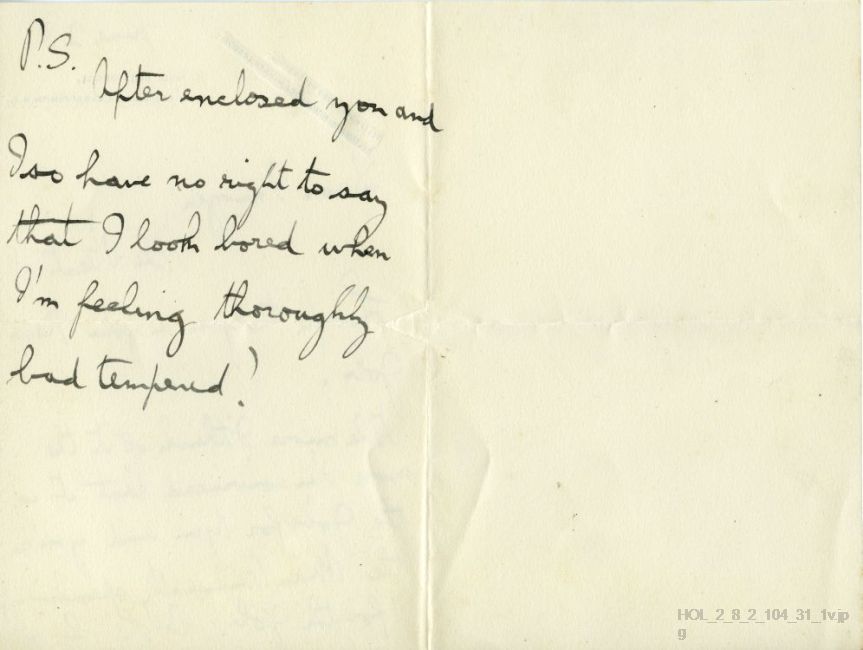 P.S.
After enclosed you and
Iso have no right to say
that I look bored when
I'm feeling thoroughly
bad tempered!
HOL_2_8_2_104_31_1v.jp
g